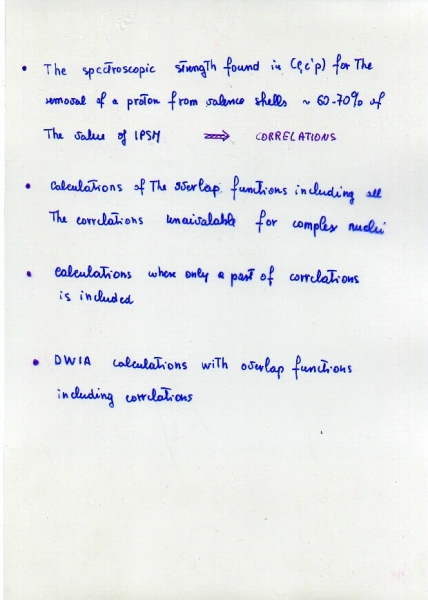 • The spectroscopic strength found in (e,e'p) for The
removal of a proton from valence shells ~ 60-70% of
The value of IPSM ⟹ CORRELATIONS
• Calculations of The overlap functions including all
The correlations unaivalable for complex nuclei
• calculations where only a part of correlations
is included
• DWIA calculations with overlap functions
including correlations